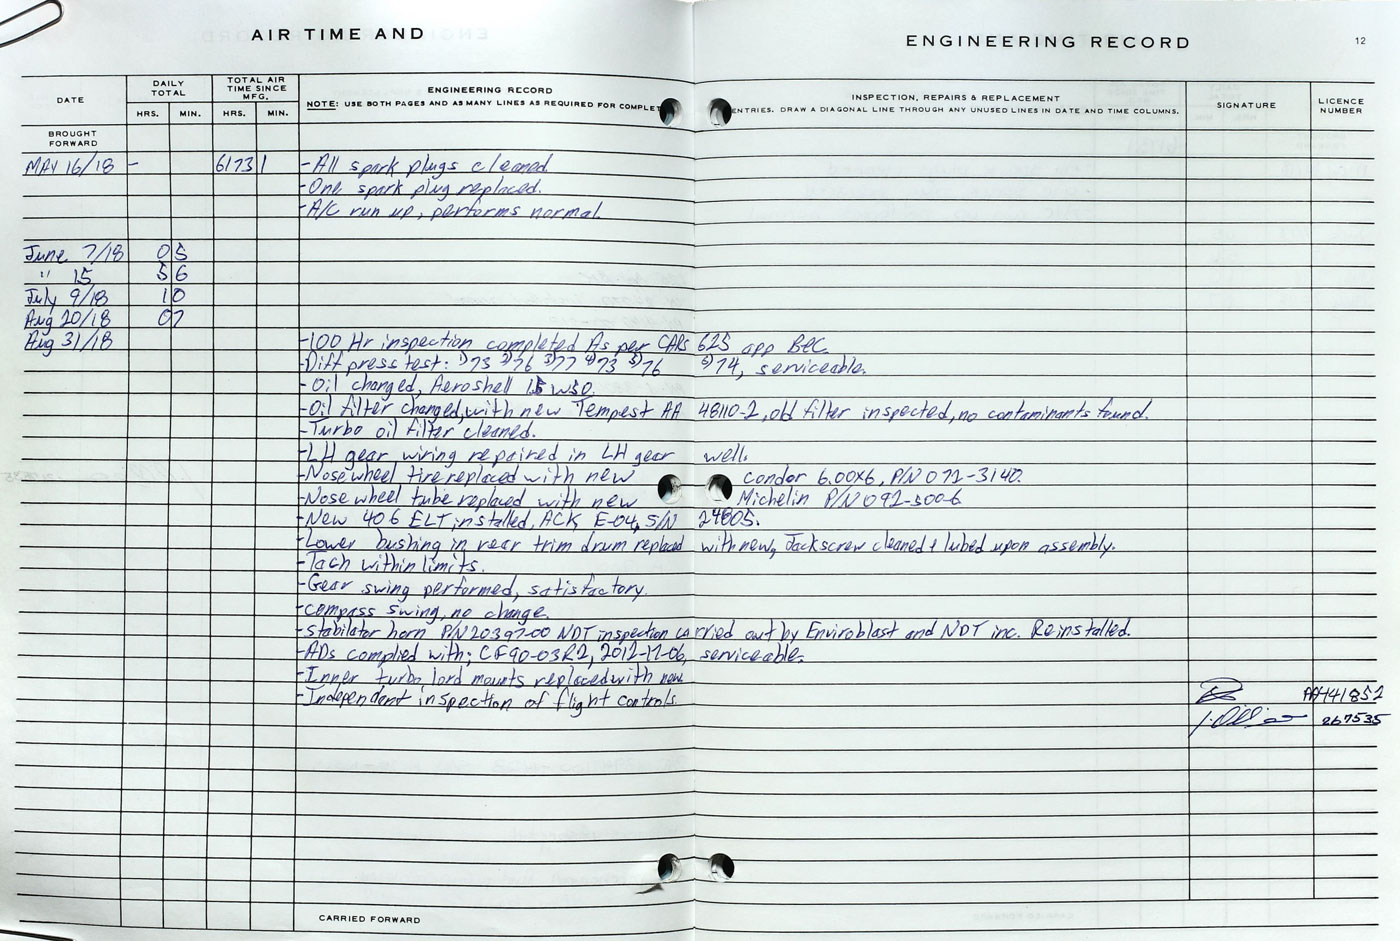 AIR TIME AND
ENGINEERING RECORD
12
DATE
DAILY TOTAL
HRS. MIN.
TOTAL AIR TIME SINCE MFG.
HRS. MIN.
ENGINEERING RECORD
NOTE: USE BOTH PAGES AND AS MANY LINES AS REQUIRED FOR COMPLET
INSPECTION, REPAIRS & REPLACEMENT
ENTRIES. DRAW A DIAGONAL LINE THROUGH ANY UNUSED LINES IN DATE AND TIME COLUMNS.
SIGNATURE
LICENCE NUMBER
BROUGHT FORWARD
MAY 16/18 - 6173 1 -All spark plugs cleaned.
-One spark plug replaced.
-A/C run up, performs normal.
June 7/18 0 5
" 15 5 6
July 9/18 1 0
Aug 20/18 0 7
Aug 31/18 -100 Hr inspection completed As per CARs 625 app B&C.
-Diff press test: 1)73 2)76 3)77 4)73 5)76 6)74, serviceable.
-Oil changed, Aeroshell 15W50.
-Oil filter changed, with new Tempest AA 48110-2, old filter inspected, no contaminants found.
-Turbo oil filter cleaned.
-LH gear wiring repaired in LH gear well.
-Nose wheel tire replaced with new condor 6.00x6, P/N 072-3140.
-Nose wheel tube replaced with new Michelin P/N 092-500-6
-New 406 ELT, installed, ACK E-04, S/N 24805.
-Lower bushing in rear trim drum replaced with new, Jackscrew cleaned & lubed upon assembly.
-Tach within limits.
-Gear swing performed, satisfactory.
-compass swing, no change.
-Stabilator horn P/N 20397-00 NDT inspection carried out by Enviroblast and NDT inc. Reinstalled.
-ADs complied with; CF90-03R2, 2012-17-06, serviceable.
-Inner turbo lord mounts replaced with new
-Independent inspection of flight controls. AA441852
267535
CARRIED FORWARD